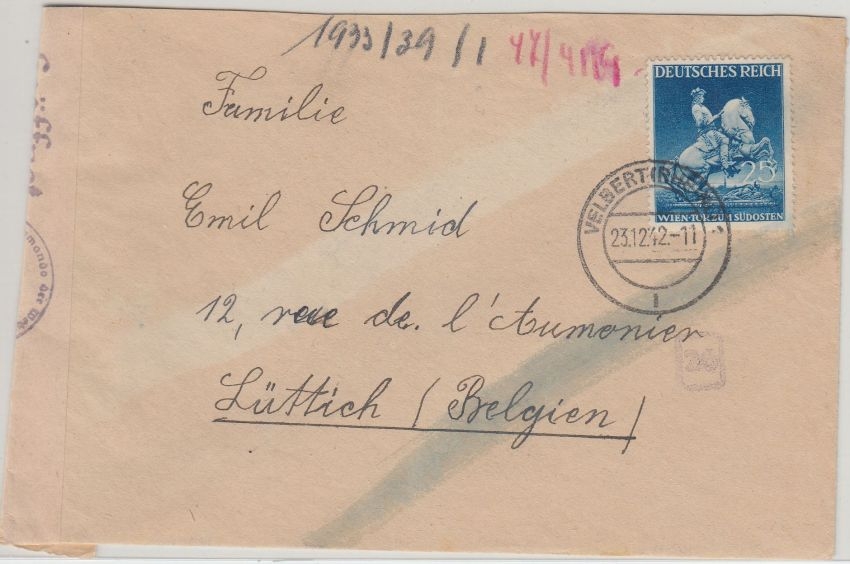 1933/39/1
DEUTSCHES REICH
25
WIEN-TOR ZUM SÜDOSTEN
VELBERT (RHEINL)
23.12.42.-11
1
Familie
Emil Schmid
12, rue de l'Aumonier
Lüttich (Belgien)